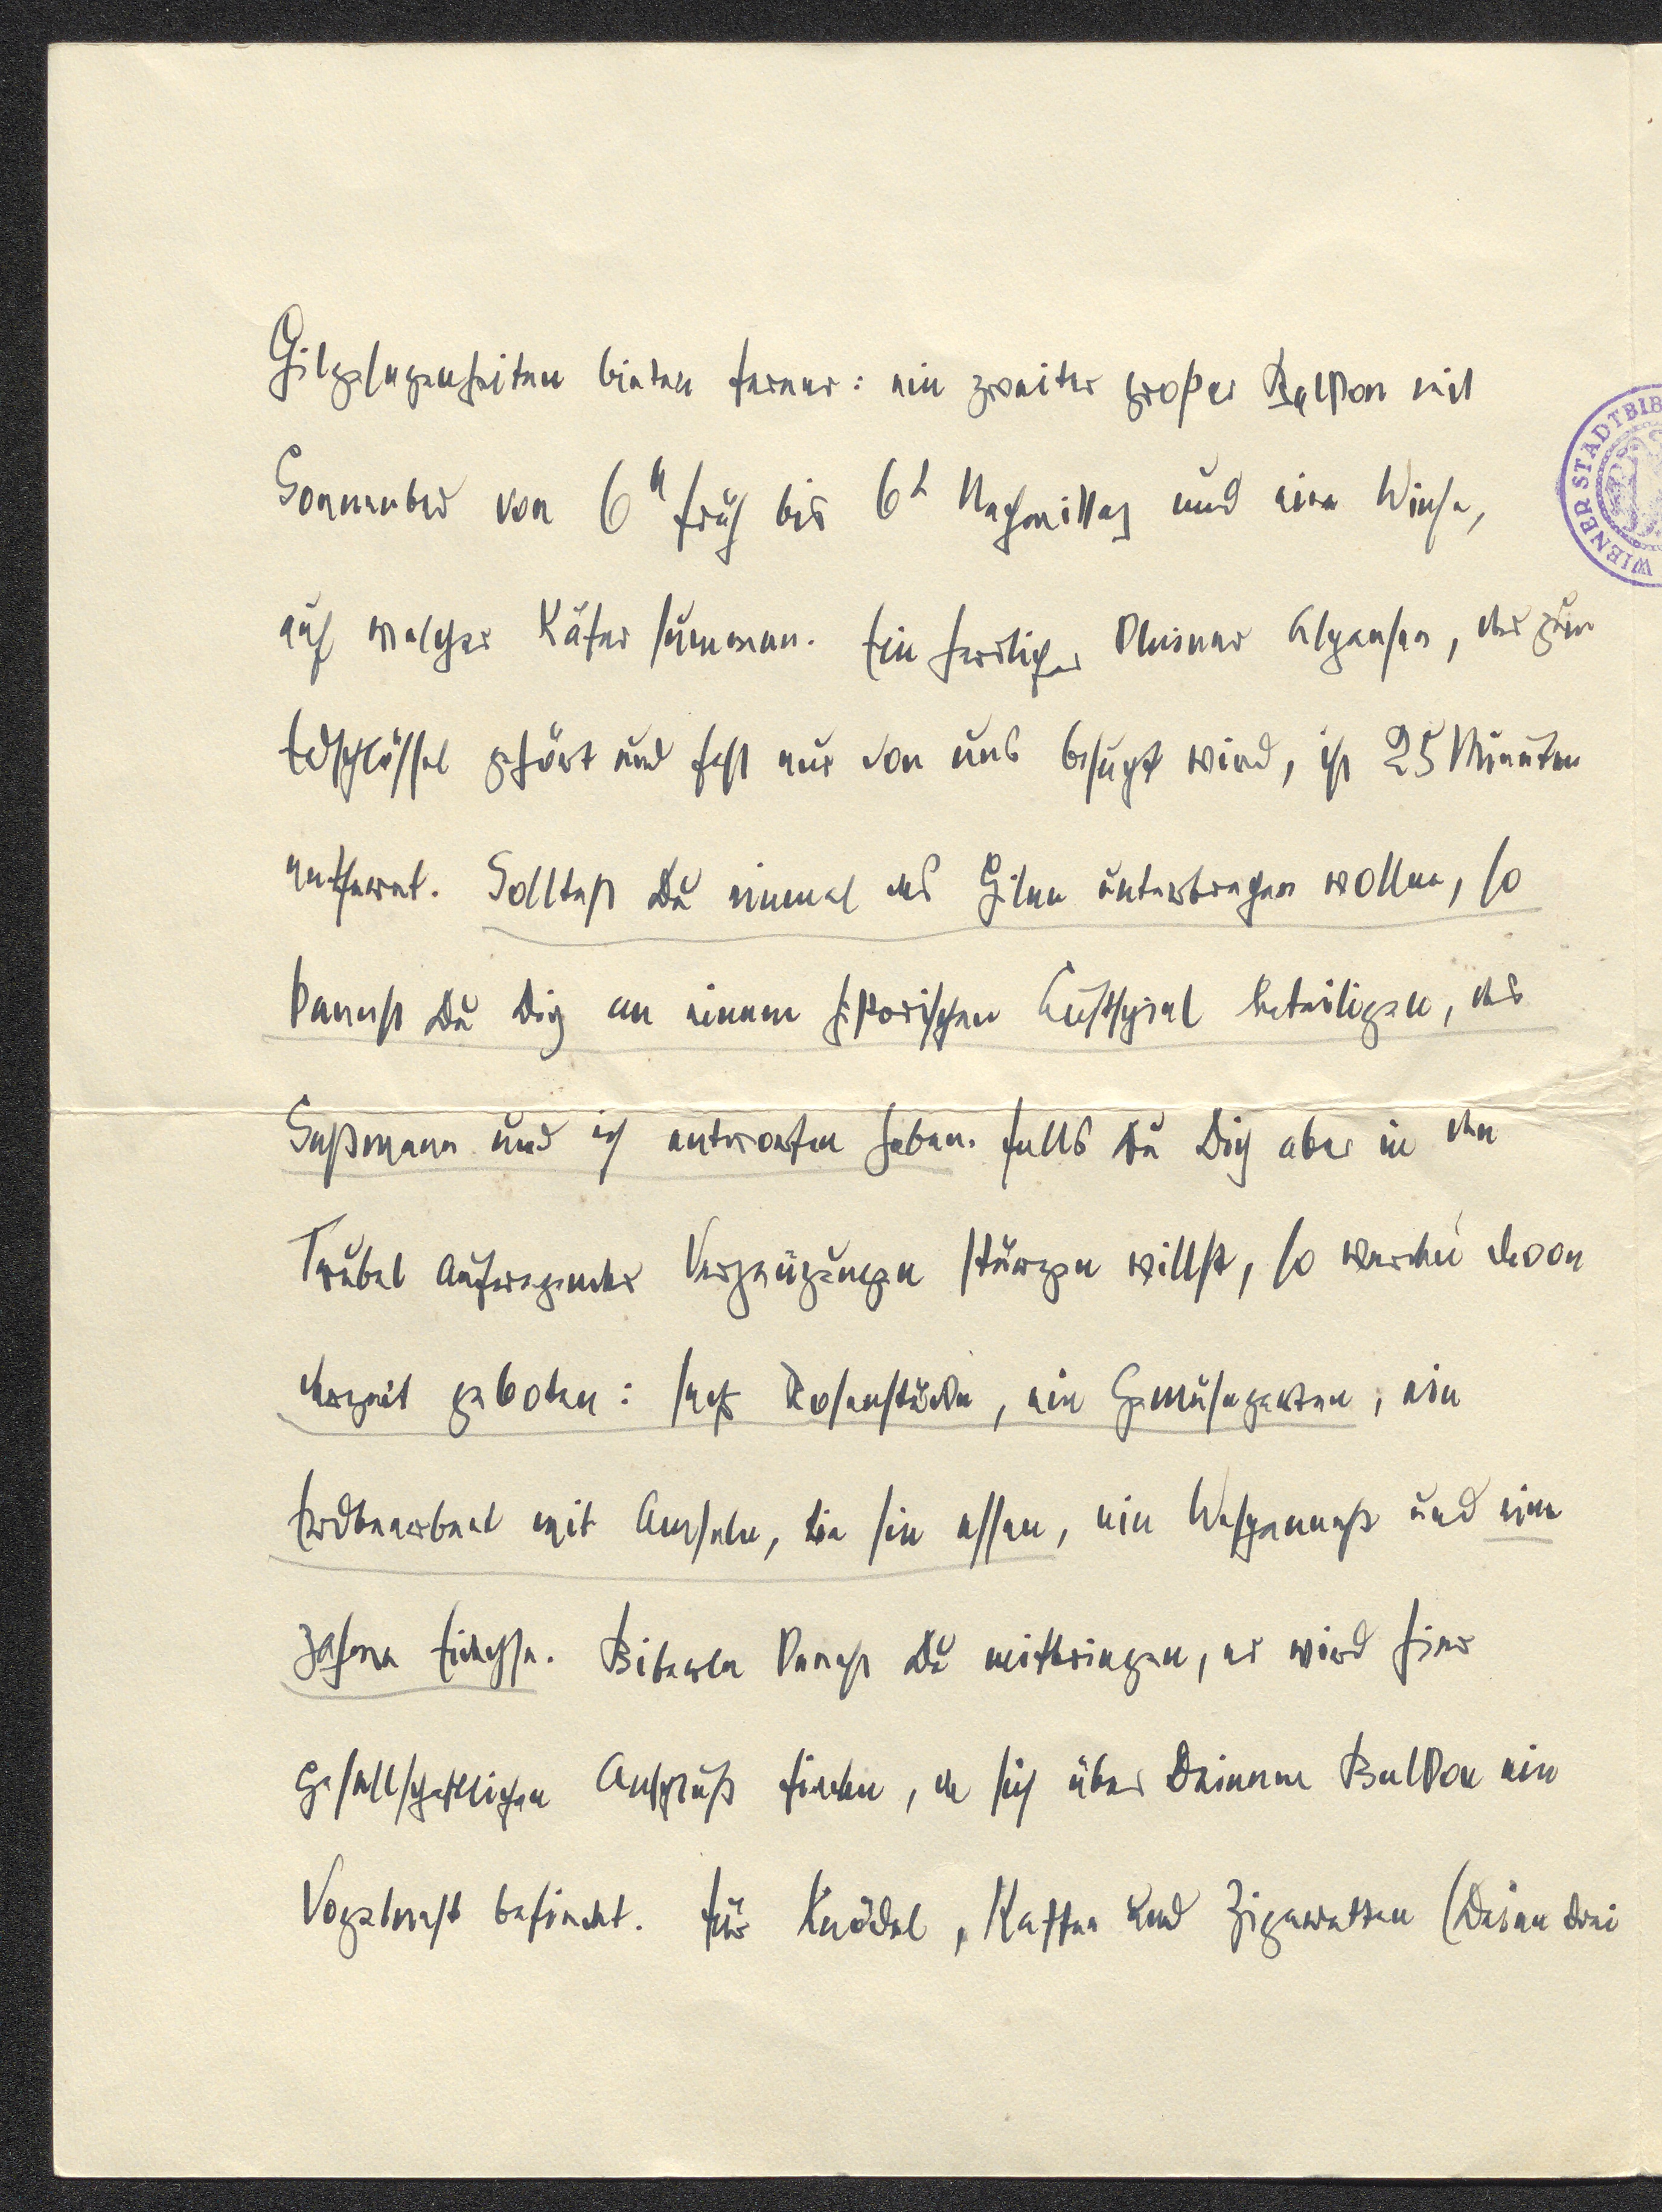 Gilgelegenheiten bieten ferner: ein zweiter großer Balkon mit
Sonnenbad von 6h früh bis 6h Nachmittag und eine Wiese,
auf welcher Käfer summen. Ein herrlicher kleiner Alpensee, der zum
Edschlössel gehört und fast nur von uns besucht wird, ist 25 Minuten
entfernt. Solltest Du einmal das Gilen unterbrechen wollen, so
kannst Du Dich an einem historischen Lustspiel beteiligen, das
Saßmann und ich entworfen haben. Falls Du Dich aber in den
Trubel aufregender Vergnügungen stürzen willst, so werden davon
derzeit geboten: sechs Rosenstöcke, ein Gemüsegarten, ein
Erdbeerbeet mit Amseln, die sie essen, ein Wespennest und eine
zahme Eidechse. Biberln kannst Du mitbringen, er wird hier
gesellschaftlichen Anschluß finden, da sich über Deinem Balkon ein
Vogelnest befindet. Für Knödel, Kaffee und Zigaretten (Deine drei
WIENER STADTBIB